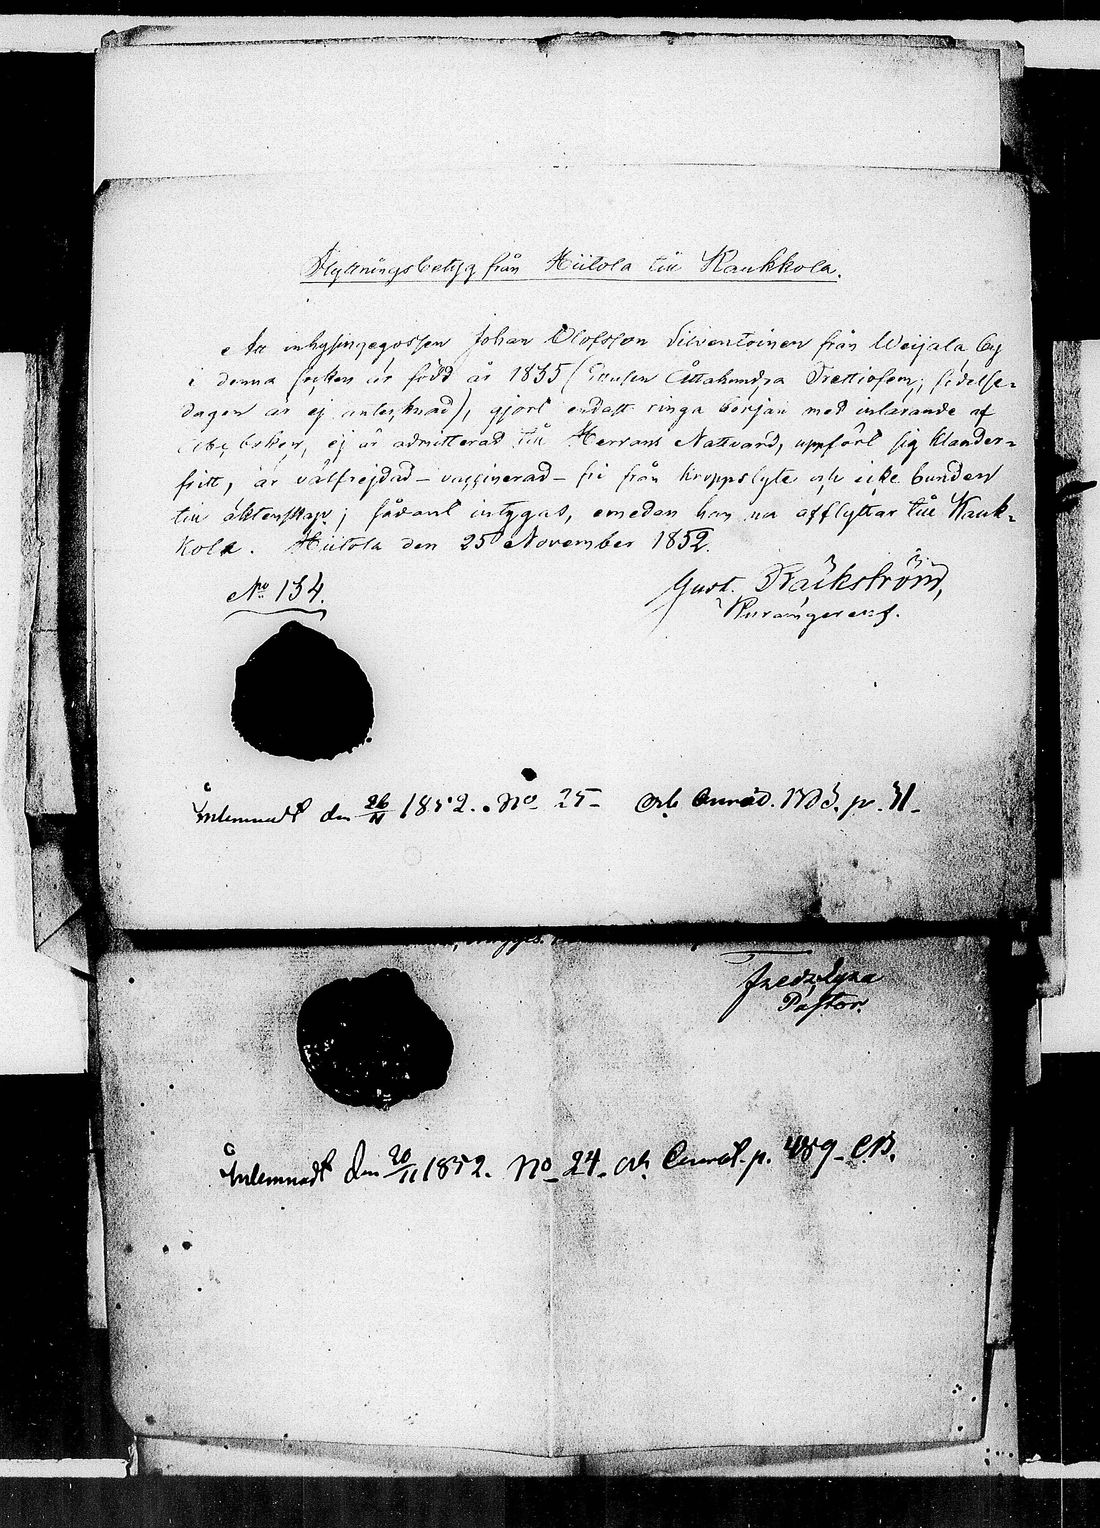 Flyttningsbetyg från Hiitola till Kaukkola.
Att inhysingegossen Johan Olofsson Silventoinen från Weijala by
i denna socken är född år 1835 (Tusen Åttahundra Trettiofem; födelse-
dagen är ej antecknad), gjort endast ringa början med inlärande af
ej är admitterad till Herrans Nattvard, uppfört sig klander-
fritt, är välfrejdad – vaccinerad – fri från kroppslyte och icke bunden
till äktenskap; sådant intygas, emedan han nu afflyttar till Kauk-
kola. Hiitola den 25 November 1852.
No 134.
Gust. Bäckström,
Inlemnadt den 26/11 1852. No 25 p. 31
Fredr.
Pastor.
Inlemnadt den 20/11 1852. No 24. p. 489